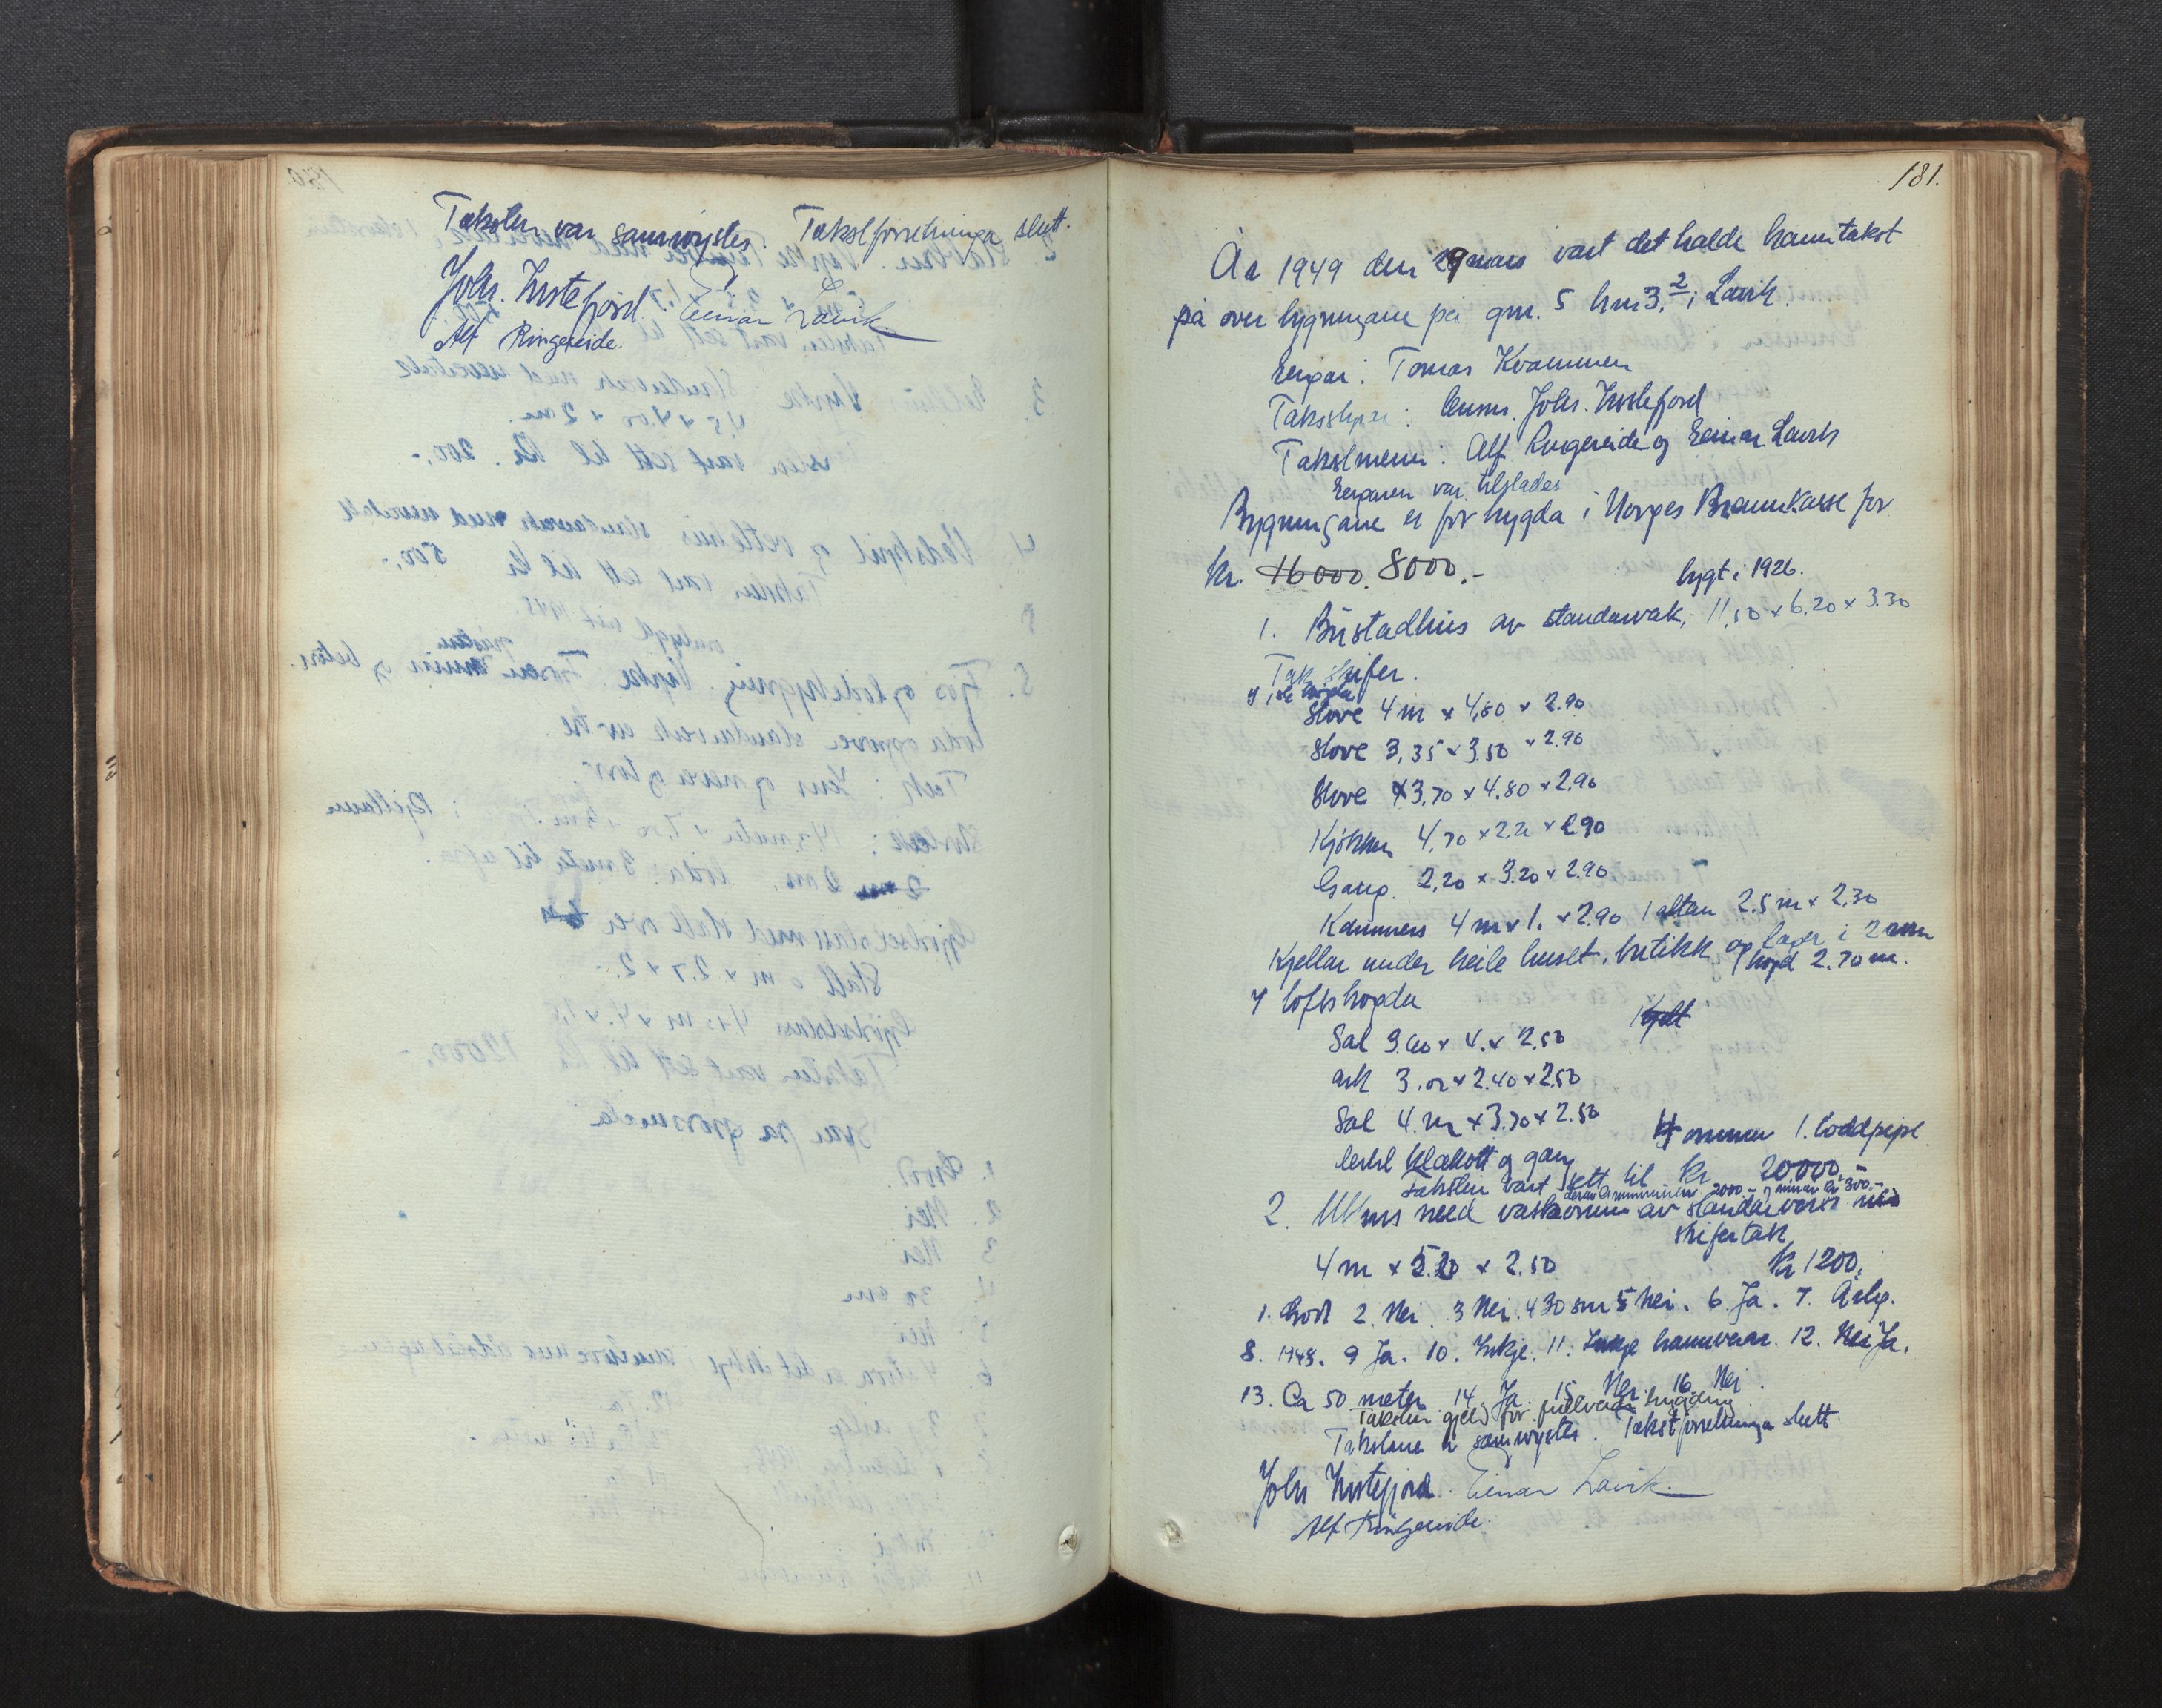 Taksten var samrøystes. Takstforretninga slutt.
Johs. Instefjord. Einar Lavik.
Alf Ringereide.
181.
År 1949 den 29 mars vart det halde branntakst
på over bygningane på gnr. 5 bnr 3,2 i Lavik
Eigar: Tomas Kvammen
Takststyrar: lensm. Johs. Instefjord
Takstmenn: Alf Ringereide og Einar Lavik
Eigaren var tilstades
Bygningane er før trygda i Norges Brannkasse for
kr. 16000. 8000.-
bygt i 1926.
1. Bustadhus av standarvak, 11,50 x 6,20 x 3.30
Tak skifer.
I 1ste høgda
Stove 4 m x 4,80 x 2.90
Stove 3,35 x 3.50 x 2.90
Stove 3,70 x 4.80 x 2,90
Kjøkken 4,70 x 2.2 x 2.90
Gang. 2,20 x 3.20 x 2.90
Kammers 4 m x 1. x 2.90 1 altan 2.5 m x 2,30
Kjellar under heile huset, butikk og lager i 2 rom
høgd 2.70 m.
I loftshøgda
Sal 3.60 x 4. x 2,50
ark 3.00 x 2.40 x 2,50
Sal 4. m x 3.70 x 2.50
4 omnar 1. loddpipe
og gang
Taksten vart sett til kr 20000.-
2000.- og kr 300.-
2. med vaskerom av standarverk med
skifertak
4 m x 5.20 x 2.50 kr 1200.
1. God 2. Nei. 3 Nei. 4 30 cm 5 Nei. 6. Ja. 7. Årleg.
8. 1948. 9 Ja. 10. Inkje. 11. Inkje brannvesen. 12. Nei Ja.
13. Ca 50 meter 14. Ja. 15. Nei. 16. Nei.
Taksten gjeld for fullverdi trygding
Takstene er samrøystes. Takstforretninga slutt
Johs Instefjord. Einar Lavik.
Alf Ringereide.